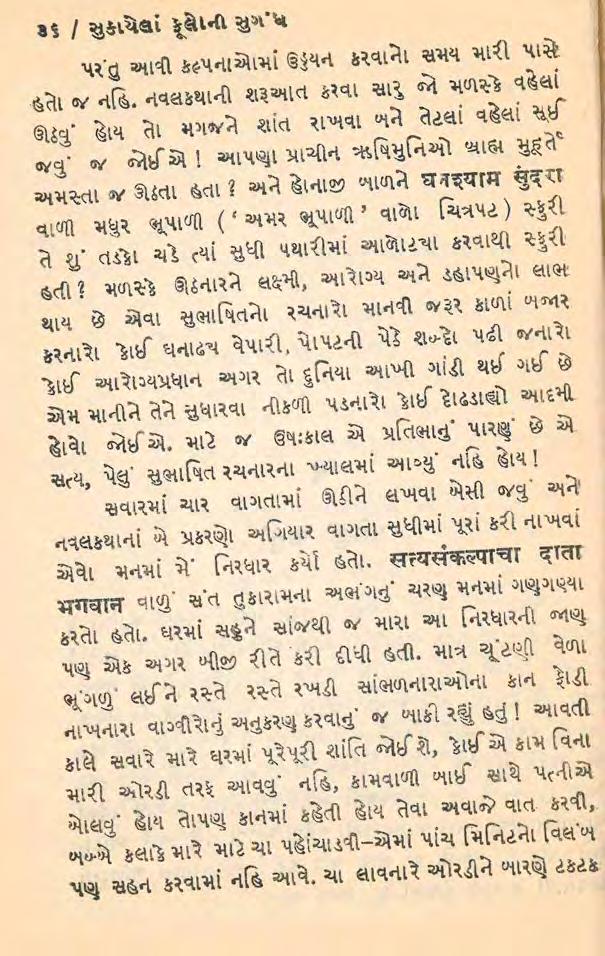 ૩૬ / સુકાયેલાં ફૂલોની સુગંધ
પરંતુ આવી કલ્પનાઓમાં ઉડ્ડયન કરવાનો સમય મારી પાસે
હતો જ નહિ. નવલકથાની શરૂઆત કરવા સારુ જો મળસ્કે વહેલાં
ઊઠવું હોય તો મગજને શાંત રાખવા બને તેટલાં વહેલાં સૂઈ
જવું જ જોઈએ ! આપણા પ્રાચીન ઋષિમુનિઓ બ્રાહ્મ મુહૂર્તે
અમસ્તા જ ઊઠતા હતા ? અને હોનાજી બાળને घनश्याम सुंदरा
વાળી મધુર ભૂપાળી (‘અમર ભૂપાળી’ વાળો ચિત્રપટ) સ્ફુરી
તે શું તડકો ચડે ત્યાં સુધી પથારીમાં આળોટ્યા કરવાથી સ્ફુરી
હતી ? મળસ્કે ઊઠનારને લક્ષ્મી, આરોગ્ય અને ડહાપણનો લાભ
થાય છે એવા સુભાષિતનો રચનારો માનવી જરૂર કાળાં બજાર
કરનારો કોઈ ધનાઢ્ય વેપારી, પોપટની પેઠે શબ્દો પઢી જનારો
કોઈ આરોગ્યપ્રધાન અગર તો દુનિયા આખી ગાંડી થઈ ગઈ છે
એમ માનીને તેને સુધારવા નીકળી પડનારો કોઈ દોઢડાહ્યો આદમી
હોવો જોઈએ. માટે જ ઉષઃકાલ એ પ્રતિભાનું પારણું છે એ
સત્ય, પેલું સુભાષિત રચનારના ખ્યાલમાં આવ્યું નહિ હોય !
સવારમાં ચાર વાગતામાં ઊઠીને લખવા બેસી જવું અને
નવલકથાનાં બે પ્રકરણો અગિયાર વાગતા સુધીમાં પૂરાં કરી નાખવાં
એવો મનમાં મેં નિરધાર કર્યો હતો. सत्यसंकल्पाचा दाता
भगवान વાળું સંત તુકારામના અભંગનું ચરણ મનમાં ગણગણ્યા
કરતો હતો. ઘરમાં સહુને સાંજથી જ મારા આ નિરધારની જાણ
પણ એક અગર બીજી રીતે કરી દીધી હતી. માત્ર ચૂંટણી વેળા
ભૂંગળું લઈને રસ્તે રસ્તે રખડી સાંભળનારાઓના કાન ફોડી
નાખનારા વાગ્વીરોનું અનુકરણ કરવાનું જ બાકી રહ્યું હતું ! આવતી
કાલે સવારે મારે ઘરમાં પૂરેપૂરી શાંતિ જોઈશે, કોઈએ કામ વિના
મારી ઓરડી તરફ આવવું નહિ, કામવાળી બાઈ સાથે પત્નીએ
બોલવું હોય તોપણ કાનમાં કહેતી હોય તેવા અવાજે વાત કરવી,
બબ્બે કલાકે મારે માટે ચા પહોંચાડવી–એમાં પાંચ મિનિટનો વિલંબ
પણ સહન કરવામાં નહિ આવે. ચા લાવનારે ઓરડીને બારણે ટકટક